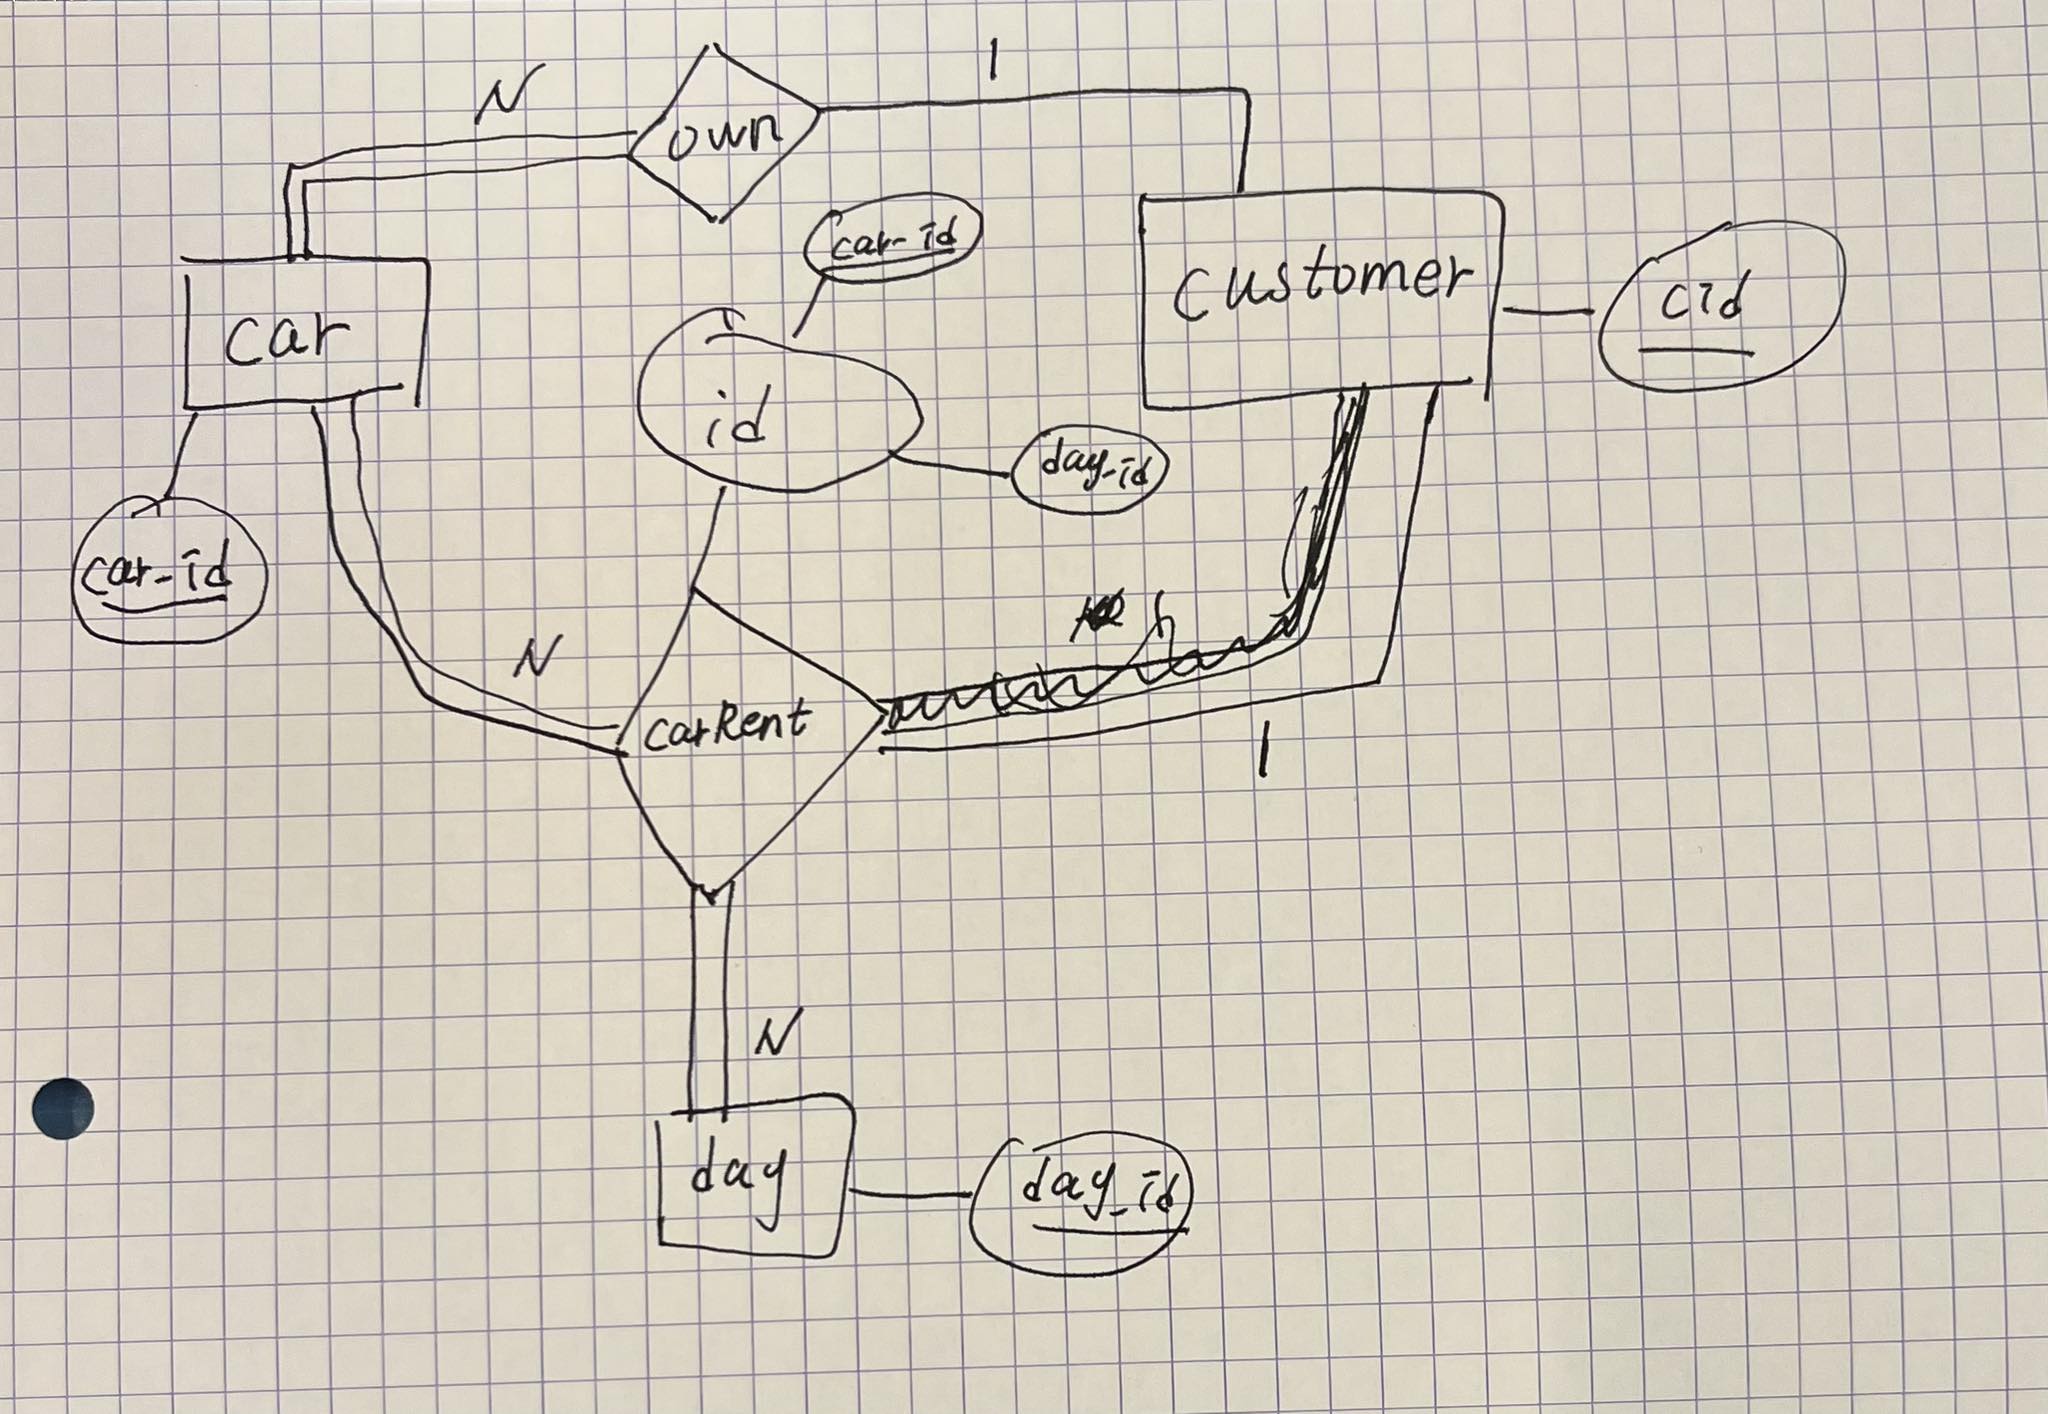 N
1
own
car-id
customer
cid
car
id
day-id
car-id
N
carRent
1
N
day
day_id